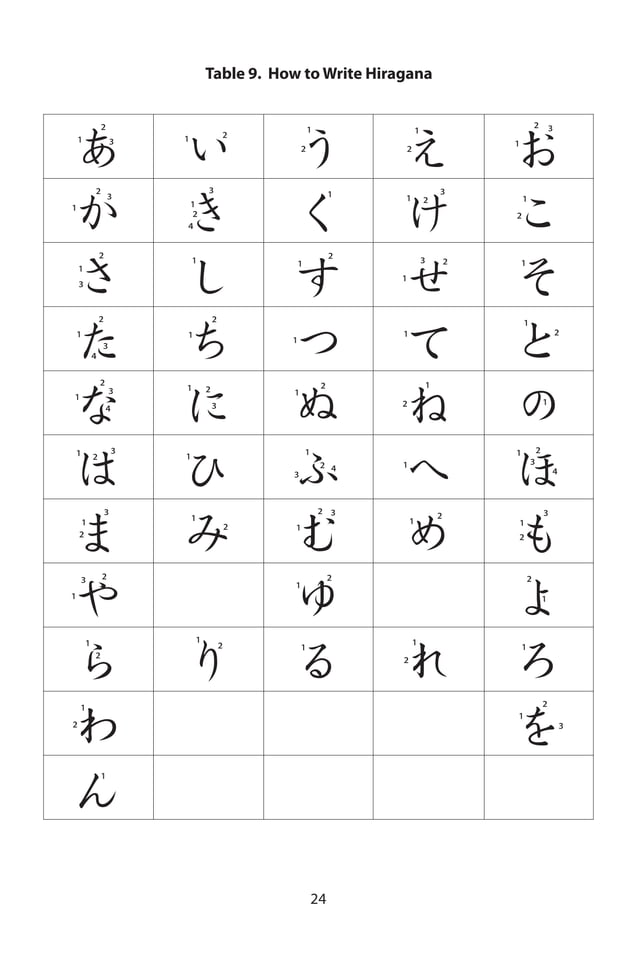 Table 9. How to Write Hiragana
あ い う え お
か き く け こ
さ し す せ そ
た ち つ て と
な に ぬ ね の
は ひ ふ へ ほ
ま み む め も
や ゆ よ
ら り る れ ろ
わ を
ん
24